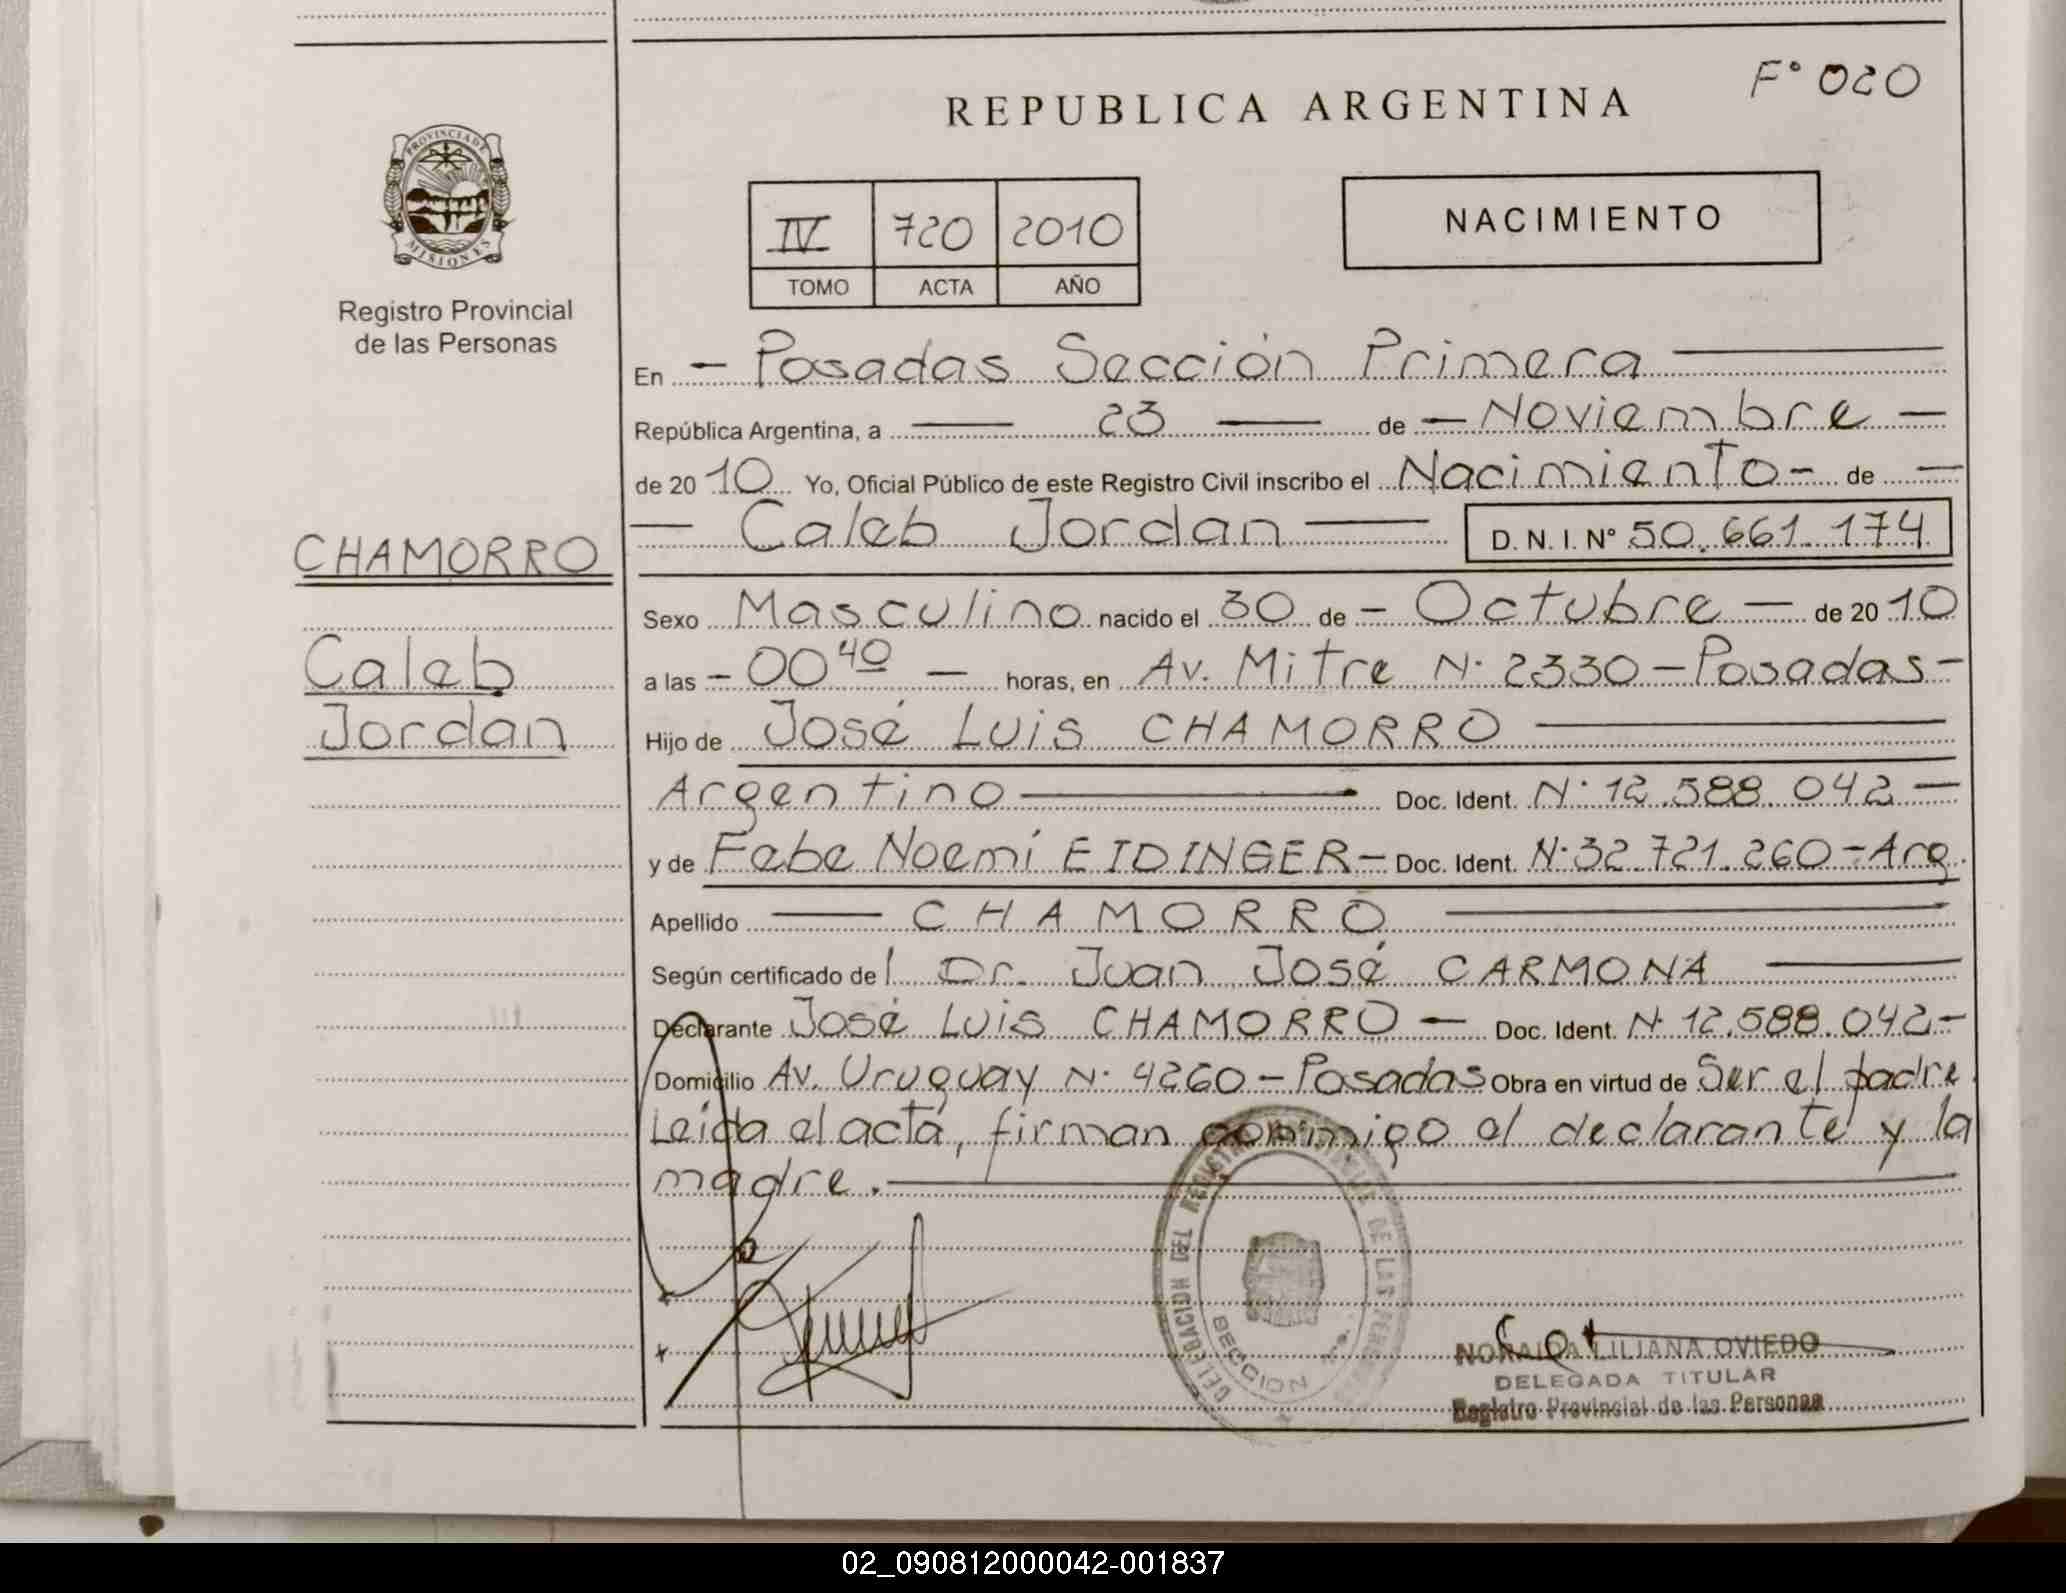 F° 020
REPUBLICA ARGENTINA
PROVINCIA DE
MISIONES
Registro Provincial
de las Personas
IV 720 2010
TOMO ACTA AÑO
NACIMIENTO
En - Posadas Sección Primera
República Argentina, a 23 de - Noviembre -
de 2010 Yo, Oficial Público de este Registro Civil inscribo el Nacimiento - de -
Caleb Jordan D.N.I. N° 50.661.174
CHAMORRO
Caleb
Jordan
Sexo Masculino nacido el 30 de - Octubre - de 2010
a las - 00 40 - horas, en Av. Mitre N° 2330 - Posadas -
Hijo de José Luis CHAMORRO
Argentino Doc. Ident. N° 12.588.042 -
y de Febe Noemí EIDINGER - Doc. Ident. N° 32.721.260 - Arg.
Apellido CHAMORRO
Según certificado del Dr. Juan José CARMONA
Declarante José Luis CHAMORRO - Doc. Ident. N° 12.588.042 -
Domicilio Av. Uruguay N° 4260 - Posadas Obra en virtud de Ser el padre.
Leída el acta, firman conmigo el declarante y la
madre.
DELEGACION DEL REGISTRO DE LAS PERSONAS
SECCION
NORAIDA LILIANA OVIEDO
DELEGADA TITULAR
Registro Provincial de las Personas
02_090812000042-001837